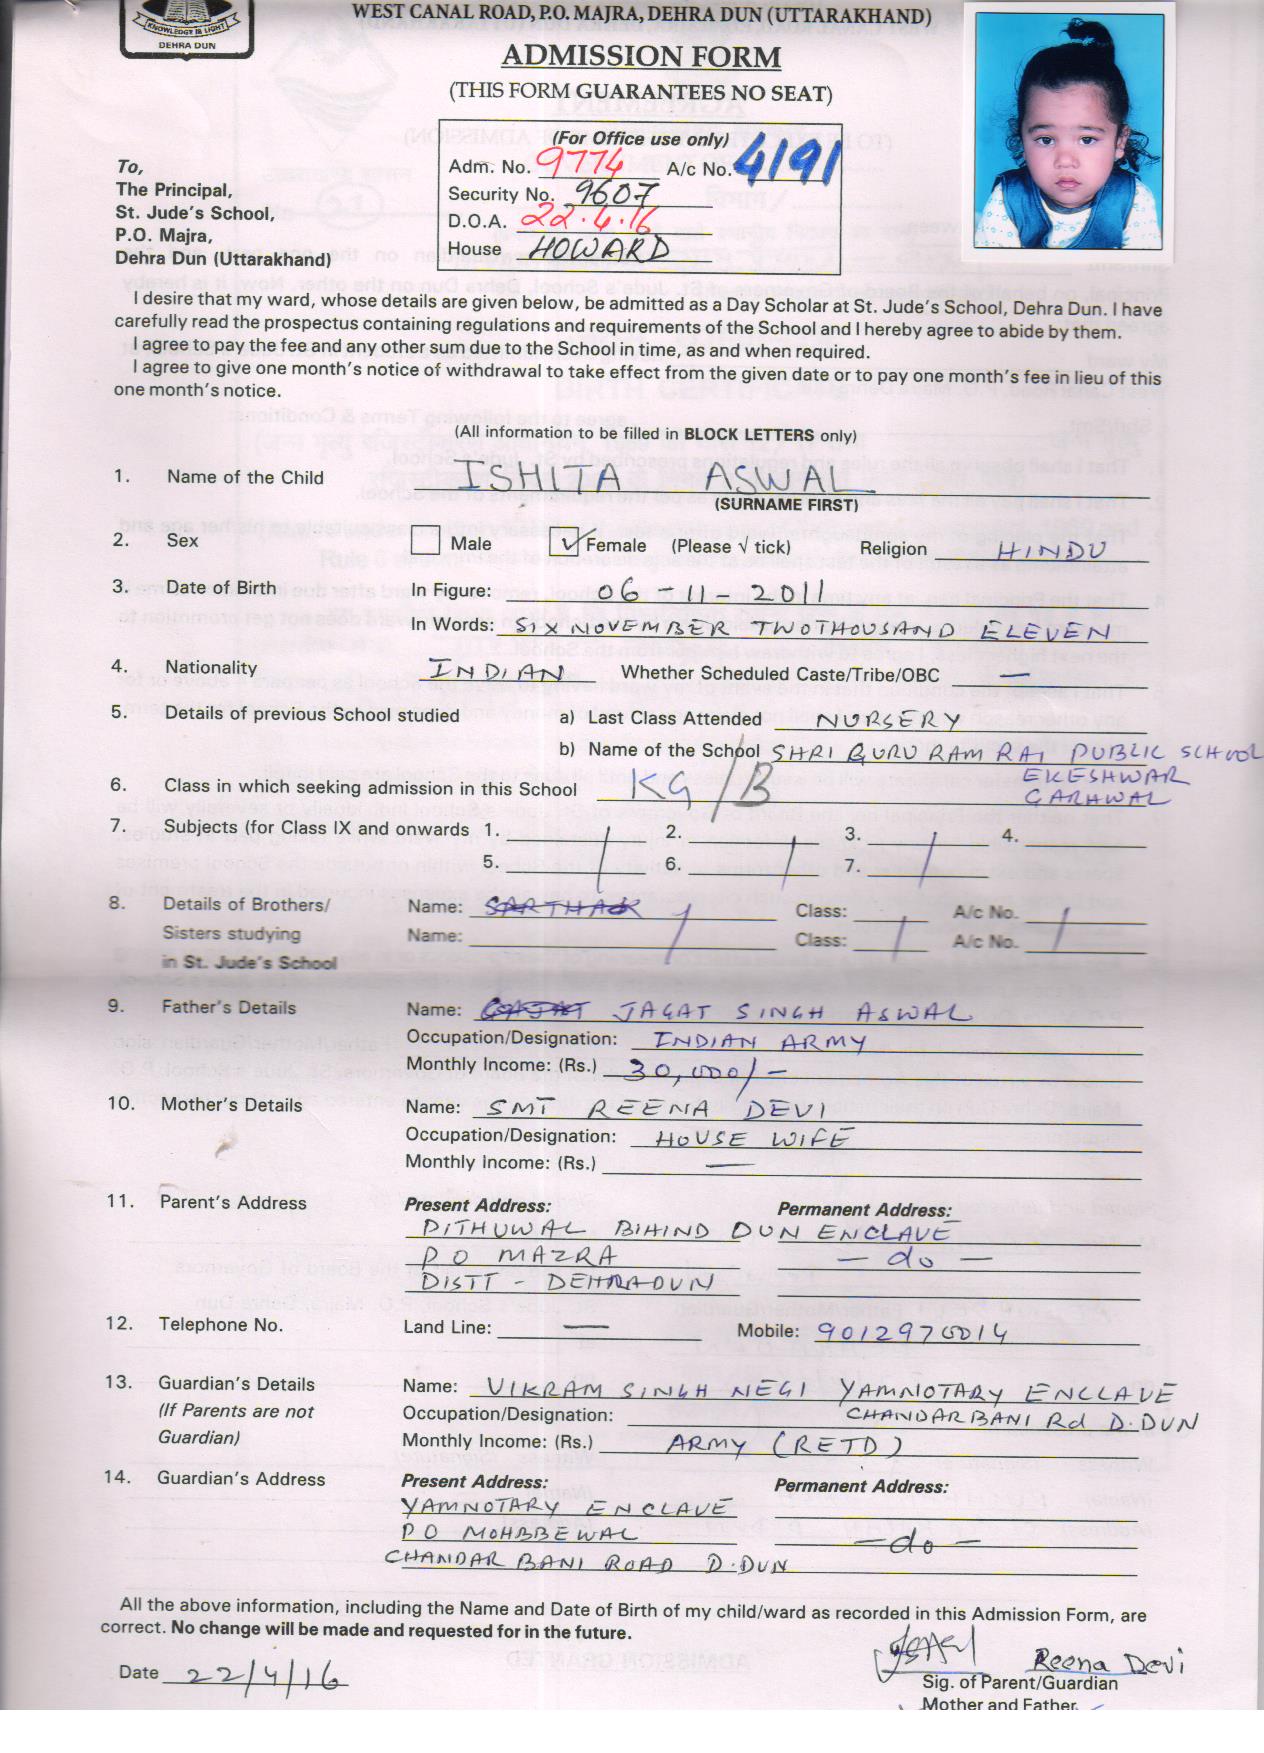 KNOWLEDGE IS LIGHT
DEHRA DUN
WEST CANAL ROAD, P.O. MAJRA, DEHRA DUN (UTTARAKHAND)
ADMISSION FORM
(THIS FORM GUARANTEES NO SEAT)
(For Office use only)
Adm. No. 9774 A/c No. 4191
Security No. 9607
D.O.A. 22.4.16
House HOWARD
To,
The Principal,
St. Jude's School,
P.O. Majra,
Dehra Dun (Uttarakhand)
I desire that my ward, whose details are given below, be admitted as a Day Scholar at St. Jude's School, Dehra Dun. I have
carefully read the prospectus containing regulations and requirements of the School and I hereby agree to abide by them.
I agree to pay the fee and any other sum due to the School in time, as and when required.
I agree to give one month's notice of withdrawal to take effect from the given date or to pay one month's fee in lieu of this
one month's notice.
(All information to be filled in BLOCK LETTERS only)
1. Name of the Child ISHITA ASWAL
(SURNAME FIRST)
2. Sex Male ✓ Female (Please √ tick) Religion HINDU
3. Date of Birth In Figure: 06 - 11 - 2011
In Words: SIX NOVEMBER TWOTHOUSAND ELEVEN
4. Nationality INDIAN Whether Scheduled Caste/Tribe/OBC —
5. Details of previous School studied a) Last Class Attended NURSERY
b) Name of the School SHRI GURU RAM RAI PUBLIC SCHOOL
EKESHWAR
6. Class in which seeking admission in this School KG/B GARHWAL
7. Subjects (for Class IX and onwards 1. 2. 3. 4.
5. 6. 7.
8. Details of Brothers/ Name: SARTHAK Class: A/c No.
Sisters studying Name: Class: A/c No.
in St. Jude's School
9. Father's Details Name: JAGAT SINGH ASWAL
Occupation/Designation: INDIAN ARMY
Monthly Income: (Rs.) 30,000/-
10. Mother's Details Name: SMT REENA DEVI
Occupation/Designation: HOUSE WIFE
Monthly Income: (Rs.) —
11. Parent's Address Present Address: Permanent Address:
PITHUWAL BIHIND DUN ENCLAVE
P O MAZRA — do —
DISTT - DEHRADUN
12. Telephone No. Land Line: — Mobile: 9012970014
13. Guardian's Details Name: VIKRAM SINGH NEGI YAMNOTARY ENCLAVE
(If Parents are not Occupation/Designation: CHANDARBANI Rd D.DUN
Guardian) Monthly Income: (Rs.) ARMY (RETD)
14. Guardian's Address Present Address: Permanent Address:
YAMNOTARY ENCLAVE
P O MOHBBEWAL — do —
CHANDAR BANI ROAD D.DUN
All the above information, including the Name and Date of Birth of my child/ward as recorded in this Admission Form, are
correct. No change will be made and requested for in the future.
Date 22/4/16 Reena Devi
Sig. of Parent/Guardian
Mother and Father